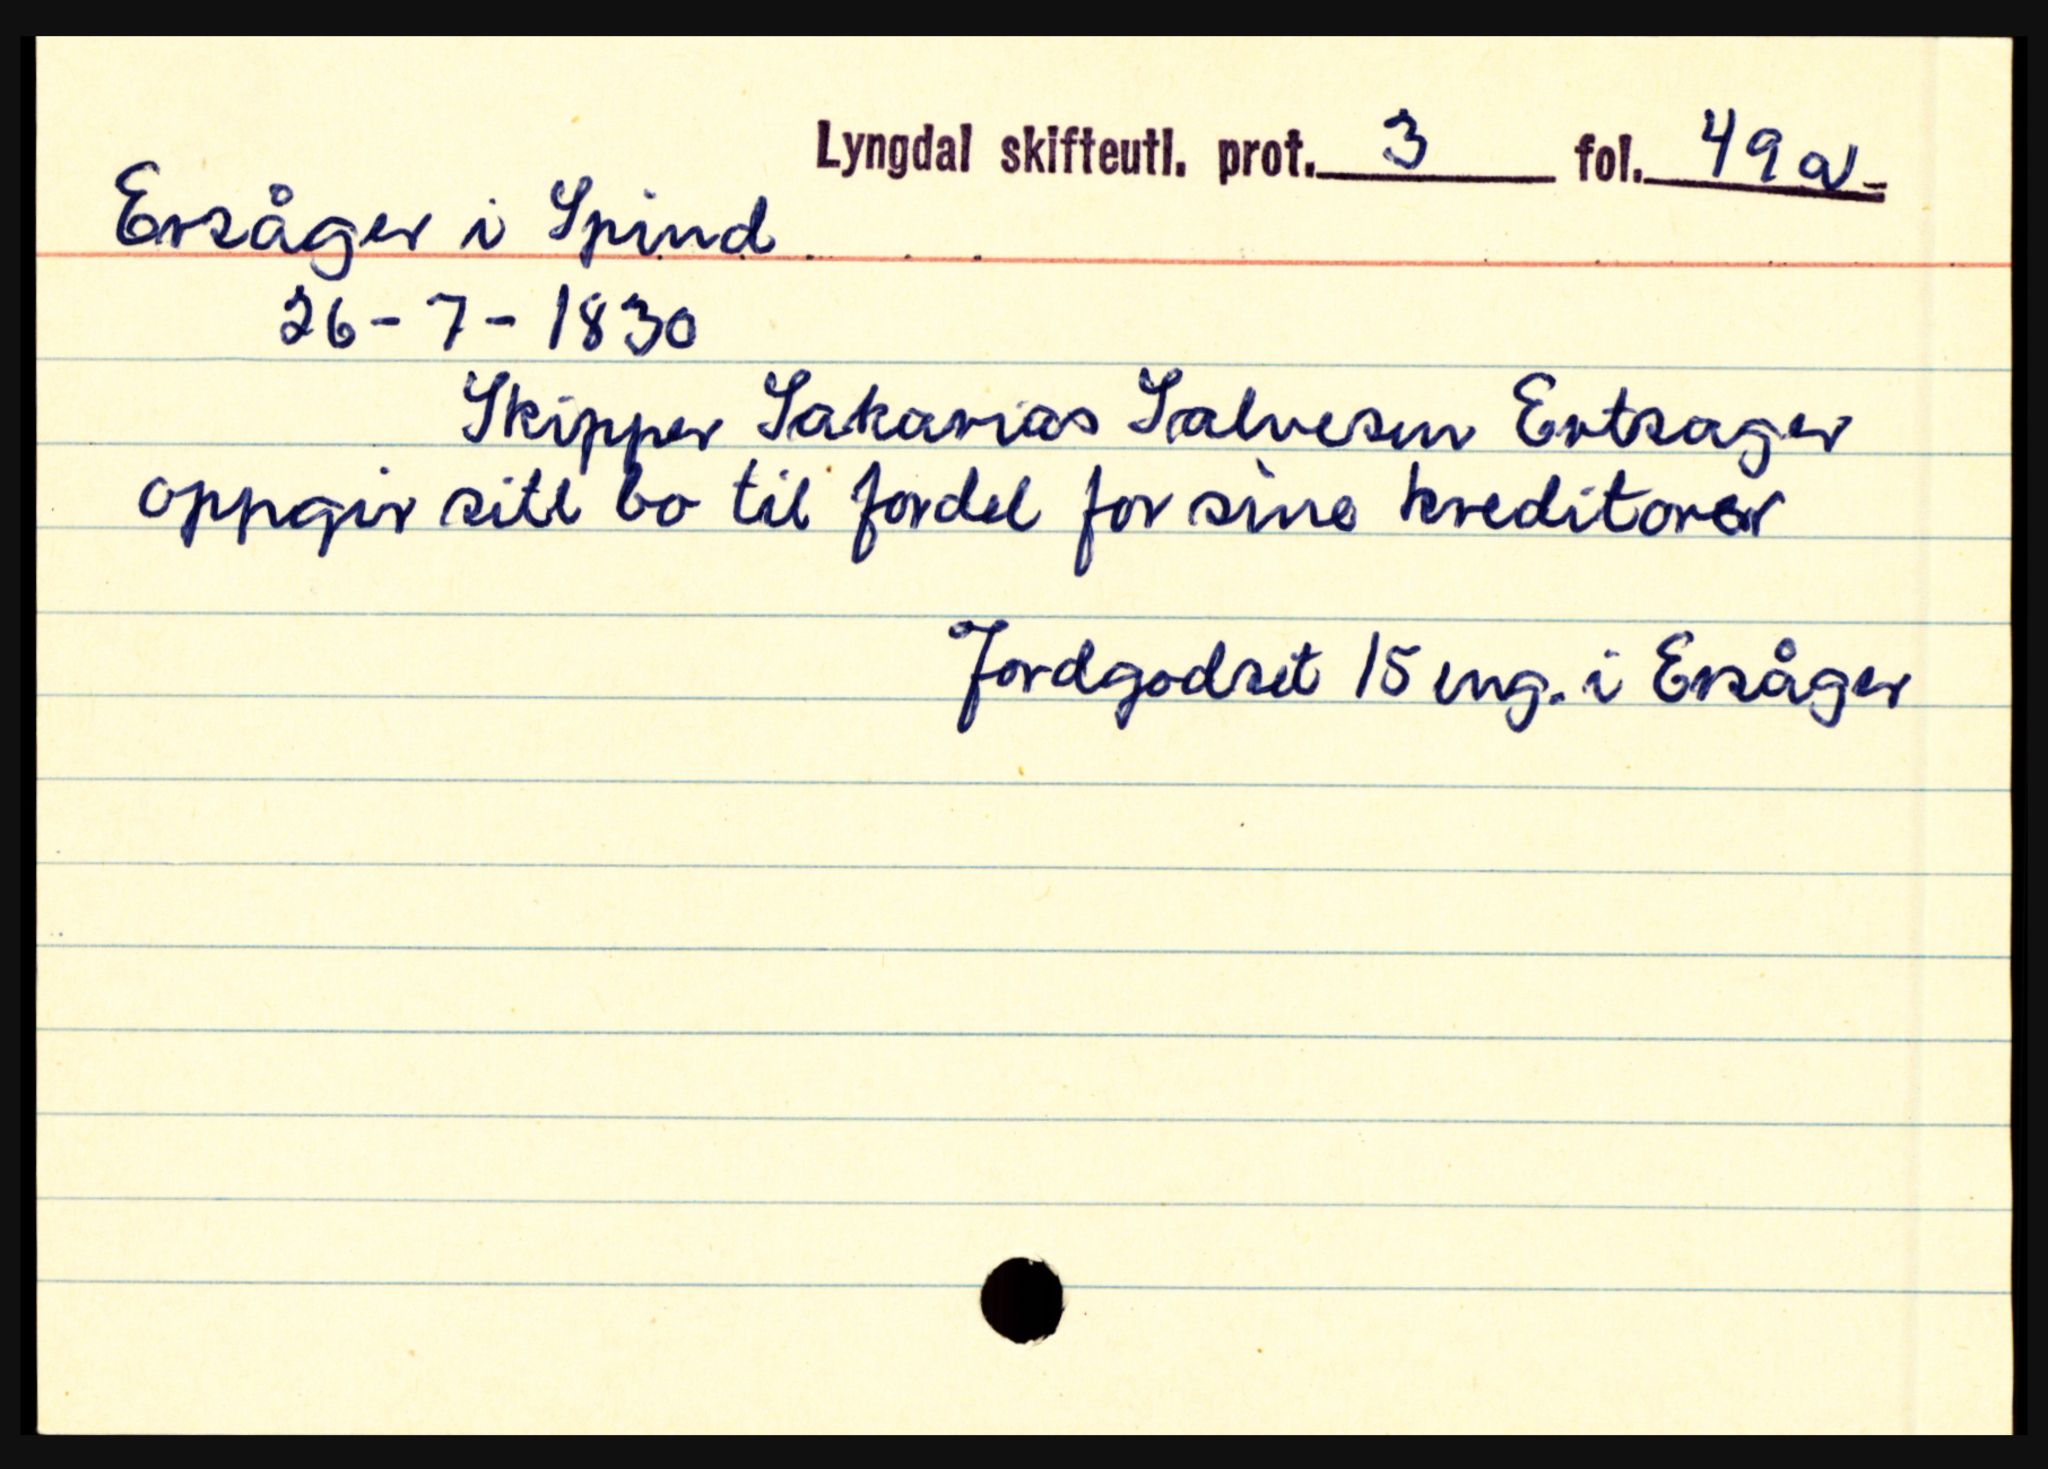 Lyngdal skifteutl. prot. 3 fol. 49a
Ersåger i Spind
26-7-1830
Skipper Sakarias Salvesen Ertsager
oppgir sitt bo til fordel for sine kreditorer
Jordgodset 15 eng. i Ersåger